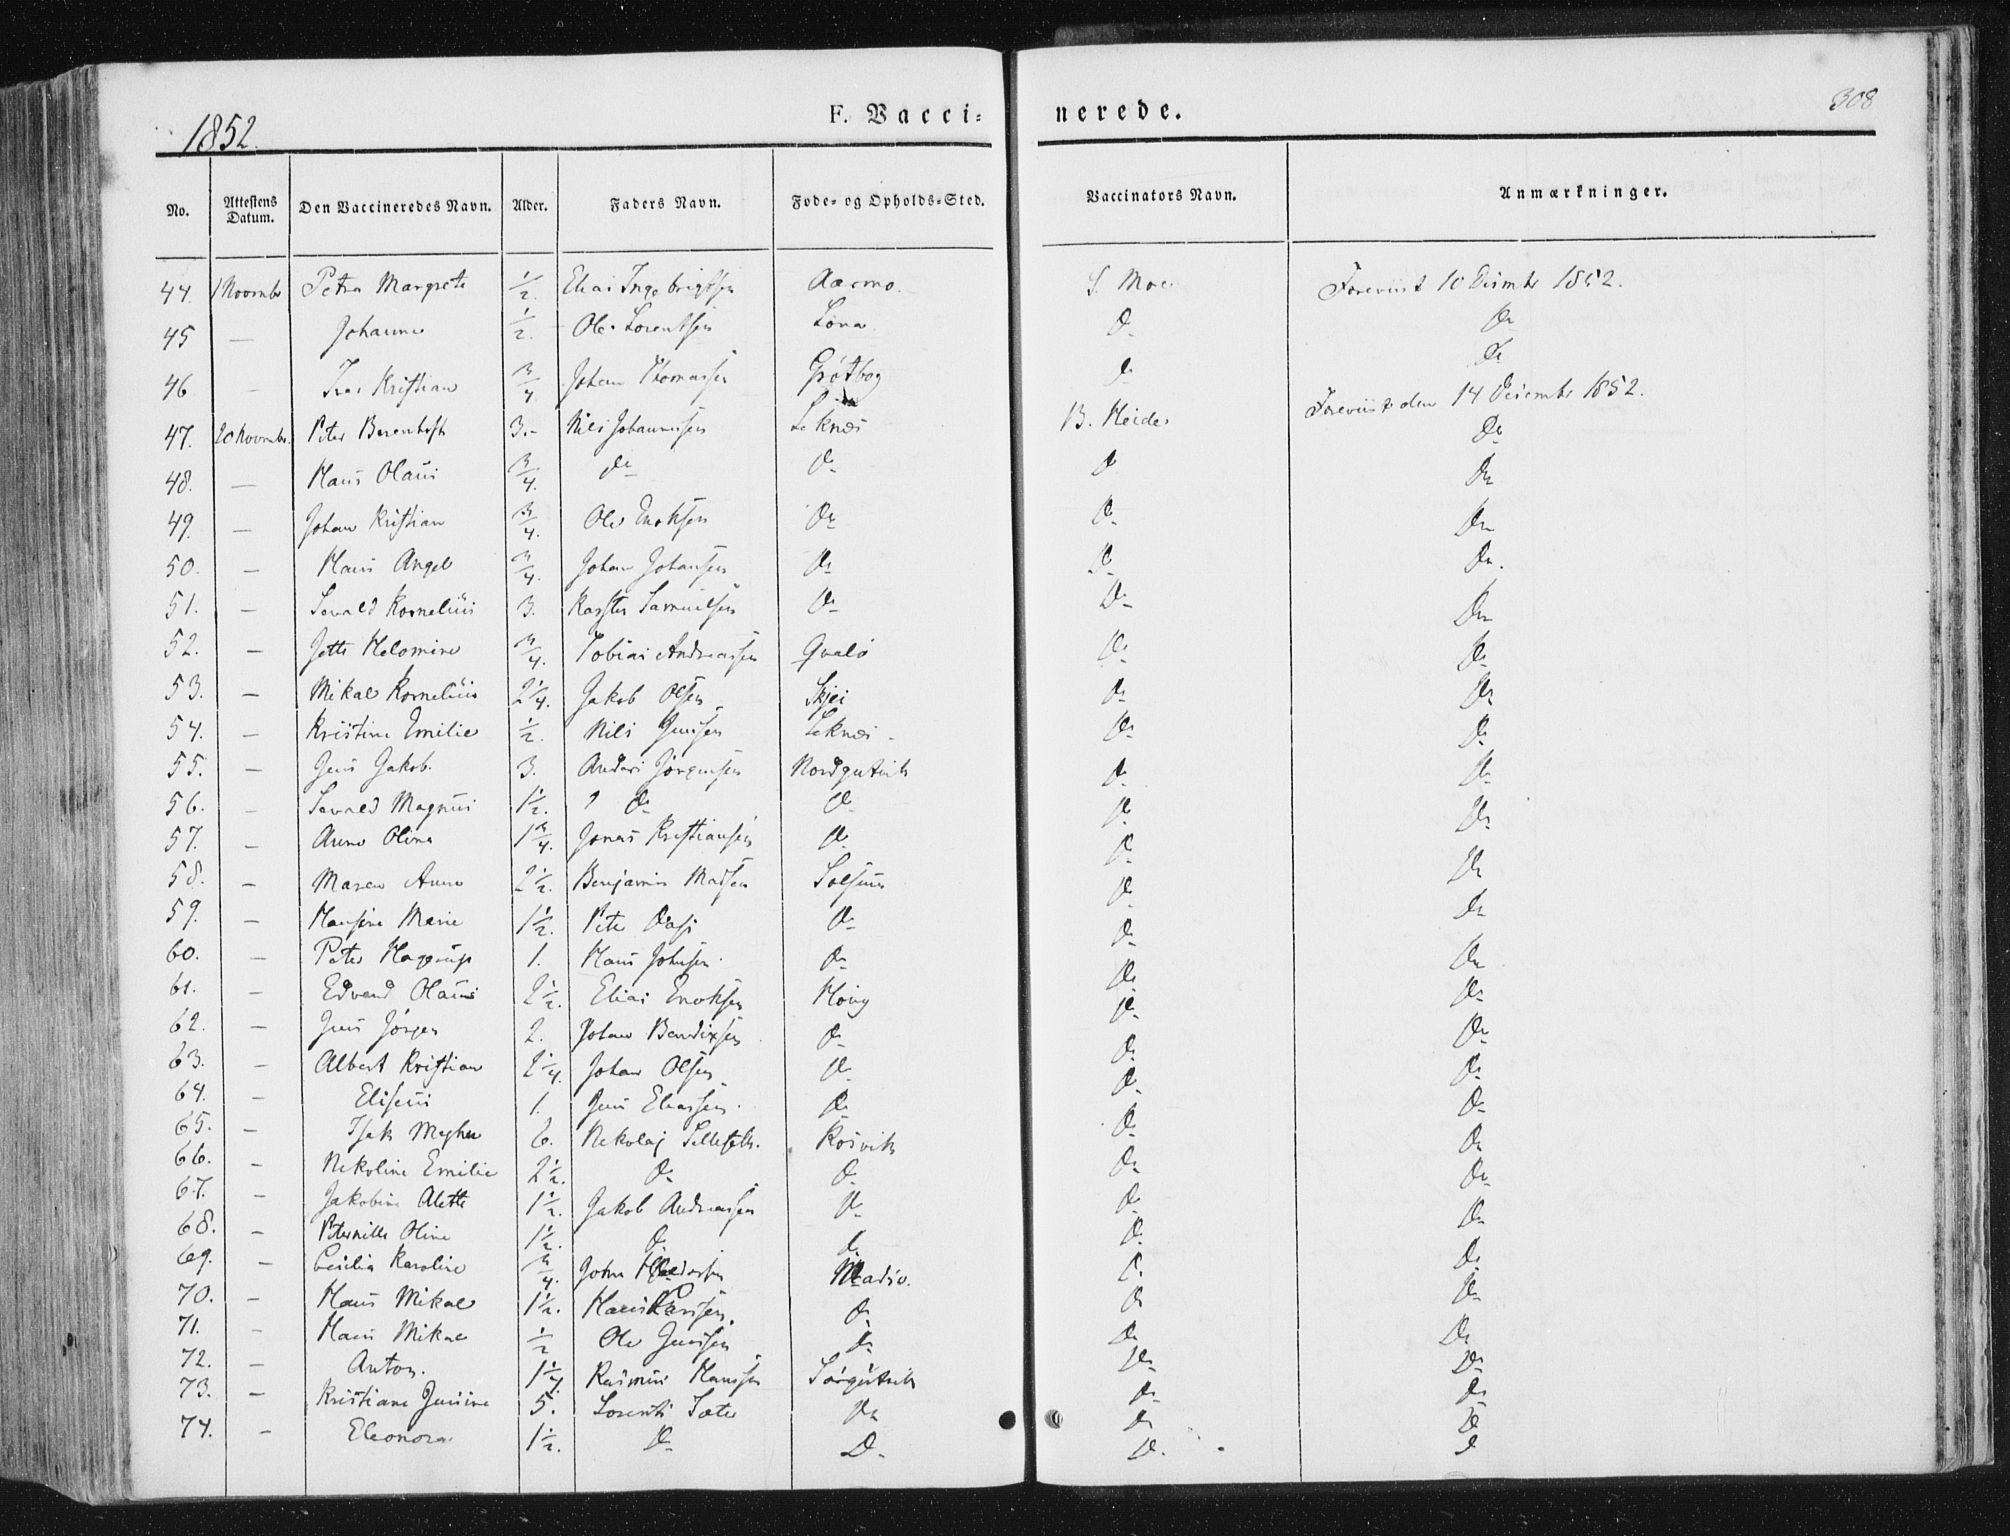 1852.
F. Vaccinerede.
308
No. Attestens Datum. Den Vaccineredes Navn. Alder. Faders Navn. Føde- og Opholds-Sted. Vaccinators Navn. Anmærkninger.
44. 1 Novmbr Petra Margrete 1/2. Elias Ingebrigtsen Aarmo. S. Moe Foreviist 10 Desmbr 1852.
45 — Johanne 1/2. Ole Lorentsen Lona D. Do
46 — Kristian 3/4 Johan Thomassen Grøtbog D. Do
47. 20 Novmbr. Peter Berenhoft 3.- Nils Johannessen Leknes B. Heide Foreviist den 14 Desembr 1852.
48. — Hans Olaus 3/4. Do D. D Do
49. — Johan Kristian 3/4. Ole Enoksen Do D. Do
50. — Hans Angel 3/4. Johan Johansen Do D. Do
51. — Sevald Kornelius 3. Karsten Samuelsen Do D. Do.
52. — Jette Helomine 3/4. Tobias Andreassen Qvalø Do Do
53. — Mikal Kornelius 2 1/4. Jakob Olsen Skjei Do Do
54. — Kristine Emilie 1/2. Nils Jensen Leknes. Do Do
55. — Jens Jakob. 3. Anders Jørgensen Nordgutvik D. Do
56. — Sevald Magnus 1 1/2. Do D. D. Do
57. — Anne Olina 1 3/4. Jonas Kristiansen D. D. Do
58. — Maren Anne 2 1/2. Benjamin Madsen Solsem D. Do
59. — Hansine Marie 1 1/2. Peter D. D. Do
60. — Peter Hagerup 1. Hans Johnsen. D. D. Do
61. — Edvard Olaus 2 1/2. Elias Enoksen Horg D. Do
62. — Jens Jørgen 2. Johan Bendixsen D. D. Do
63. — Albert Kristian 2 1/4. Johan Olsen D. D. Do
64. — Eliseus 1. Jens Eliassen. D. D. Do
65. — Isak 6. Nekolaj Rosvik D. Do
66. — Nekoline Emilie 2 1/2. D. D. D. Do
67. — Jakobine Alette 1 1/2. Jakob Andreassen D. D. Do
68. — Peternille Oline 1 1/2. D. D. D. Do
69. — Cesilia Karoline 3/4. John Madsø. D. Do
70. — Hans Mikal 1 1/2. Hans Larssen. D. D. Do
71. — Hans Mikal 1/2 Ole Jenssen D. Do Do
72. — Anton. 1 1/4. Rasmus Hanssen Sørgutvik Do Do
73. — Kristiane Jensine 5. Lorents Sæter Do D. Do
74. — Eleonora 1 1/2. D. D. D. D